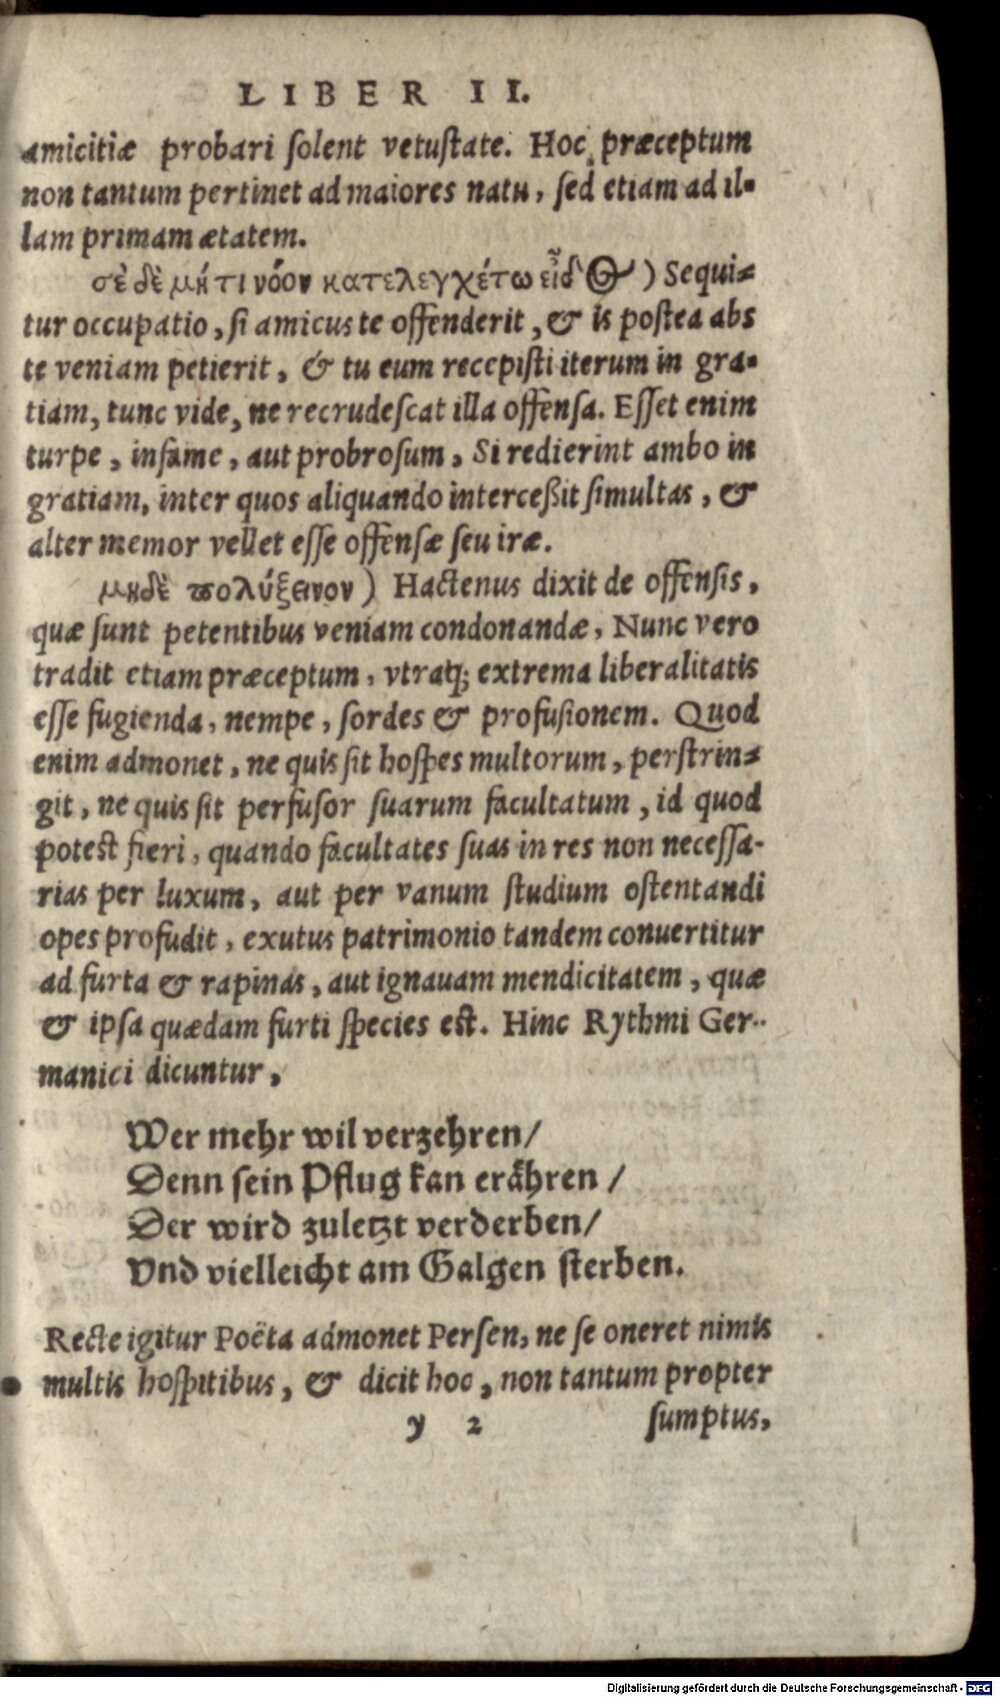 LIBER II.
amicitiæ probari ſolent vetuſtate. Hoc præceptum
non tantum pertinet ad maiores natu, ſed etiam ad il-
lam primam ætatem.
σὲ δὲ μήτι νόον κατελεγχέτω εἶδος) Sequi-
tur occupatio, ſi amicus te offenderit, & is poſtea abs
te veniam petierit, & tu eum recepiſti iterum in gra-
tiam, tunc vide, ne recrudeſcat illa offenſa. Eſſet enim
turpe, infame, aut probroſum, Si redierint ambo in
gratiam, inter quos aliquando interceßit ſimultas, &
alter memor vellet eſſe offenſæ ſeu iræ.
μηδὲ πολύξεινον) Hactenus dixit de offenſis,
quæ ſunt petentibus veniam condonandæ, Nunc vero
tradit etiam præceptum, vtraq; extrema liberalitatis
eſſe fugienda, nempe, ſordes & profuſionem. Quod
enim admonet, ne quis ſit hoſpes multorum, perſtrin-
git, ne quis ſit perfuſor ſuarum facultatum, id quod
poteſt fieri, quando facultates ſuas in res non neceſſa-
rias per luxum, aut per vanum ſtudium oſtentandi
opes profudit, exutus patrimonio tandem conuertitur
ad furta & rapinas, aut ignauam mendicitatem, quæ
& ipſa quædam furti ſpecies eſt. Hinc Rythmi Ger-
manici dicuntur,
Wer mehr wil verzehren/
Denn ſein Pflug kan erähren/
Der wird zuletzt verderben/
Vnd vielleicht am Galgen ſterben.
Recte igitur Poëta admonet Perſen, ne ſe oneret nimis
multis hoſpitibus, & dicit hoc, non tantum propter
y 2 ſumptus,
Digitalisierung gefördert durch die Deutsche Forschungsgemeinschaft - DFG